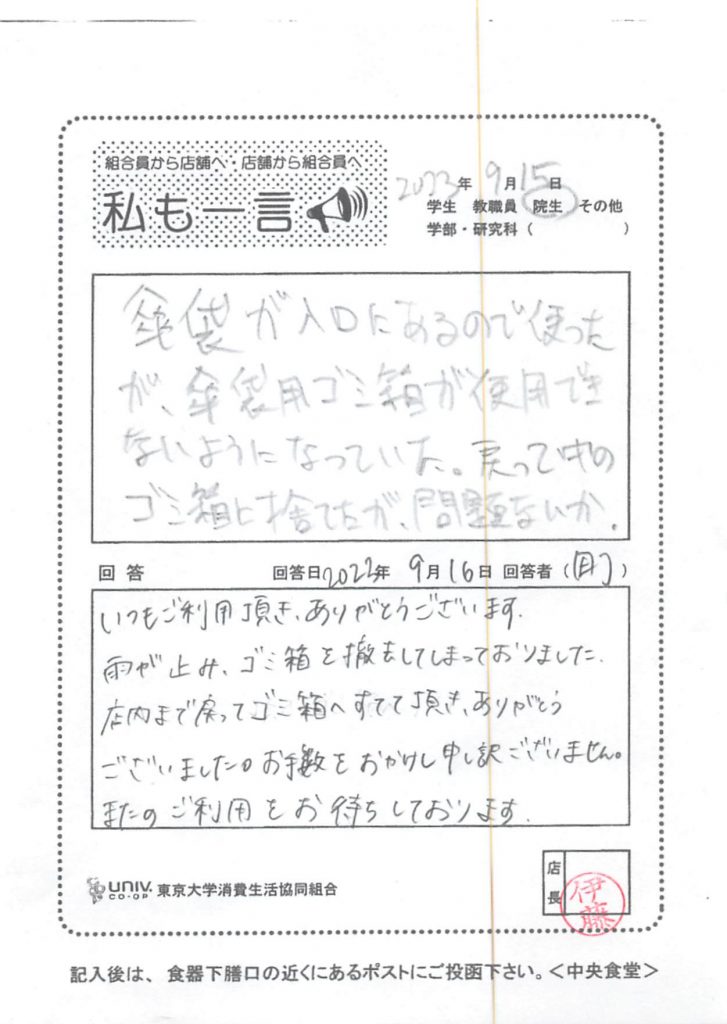 組合員から店舗へ・店舗から組合員へ
私も一言
2023年 9月15日
学生 教職員 院生 その他
学部・研究科( )
傘袋が入口にあるので使った
が、傘袋用ゴミ箱が使用でき
ないようになっていた。戻って中の
ゴミ箱に捨てたが、問題ないか.
回答 回答日2022年 9月16日 回答者( )
いつもご利用頂き、ありがとうございます.
雨が止み、ゴミ箱を撤去してしまっておりました.
店内まで戻ってゴミ箱へすてて頂き、ありがとう
ございました。お手数をおかけし申し訳ございません。
またのご利用をお待ちしております.
UNIV. CO-OP 東京大学消費生活協同組合
店長
伊藤
記入後は、食器下膳口の近くにあるポストにご投函下さい。<中央食堂>